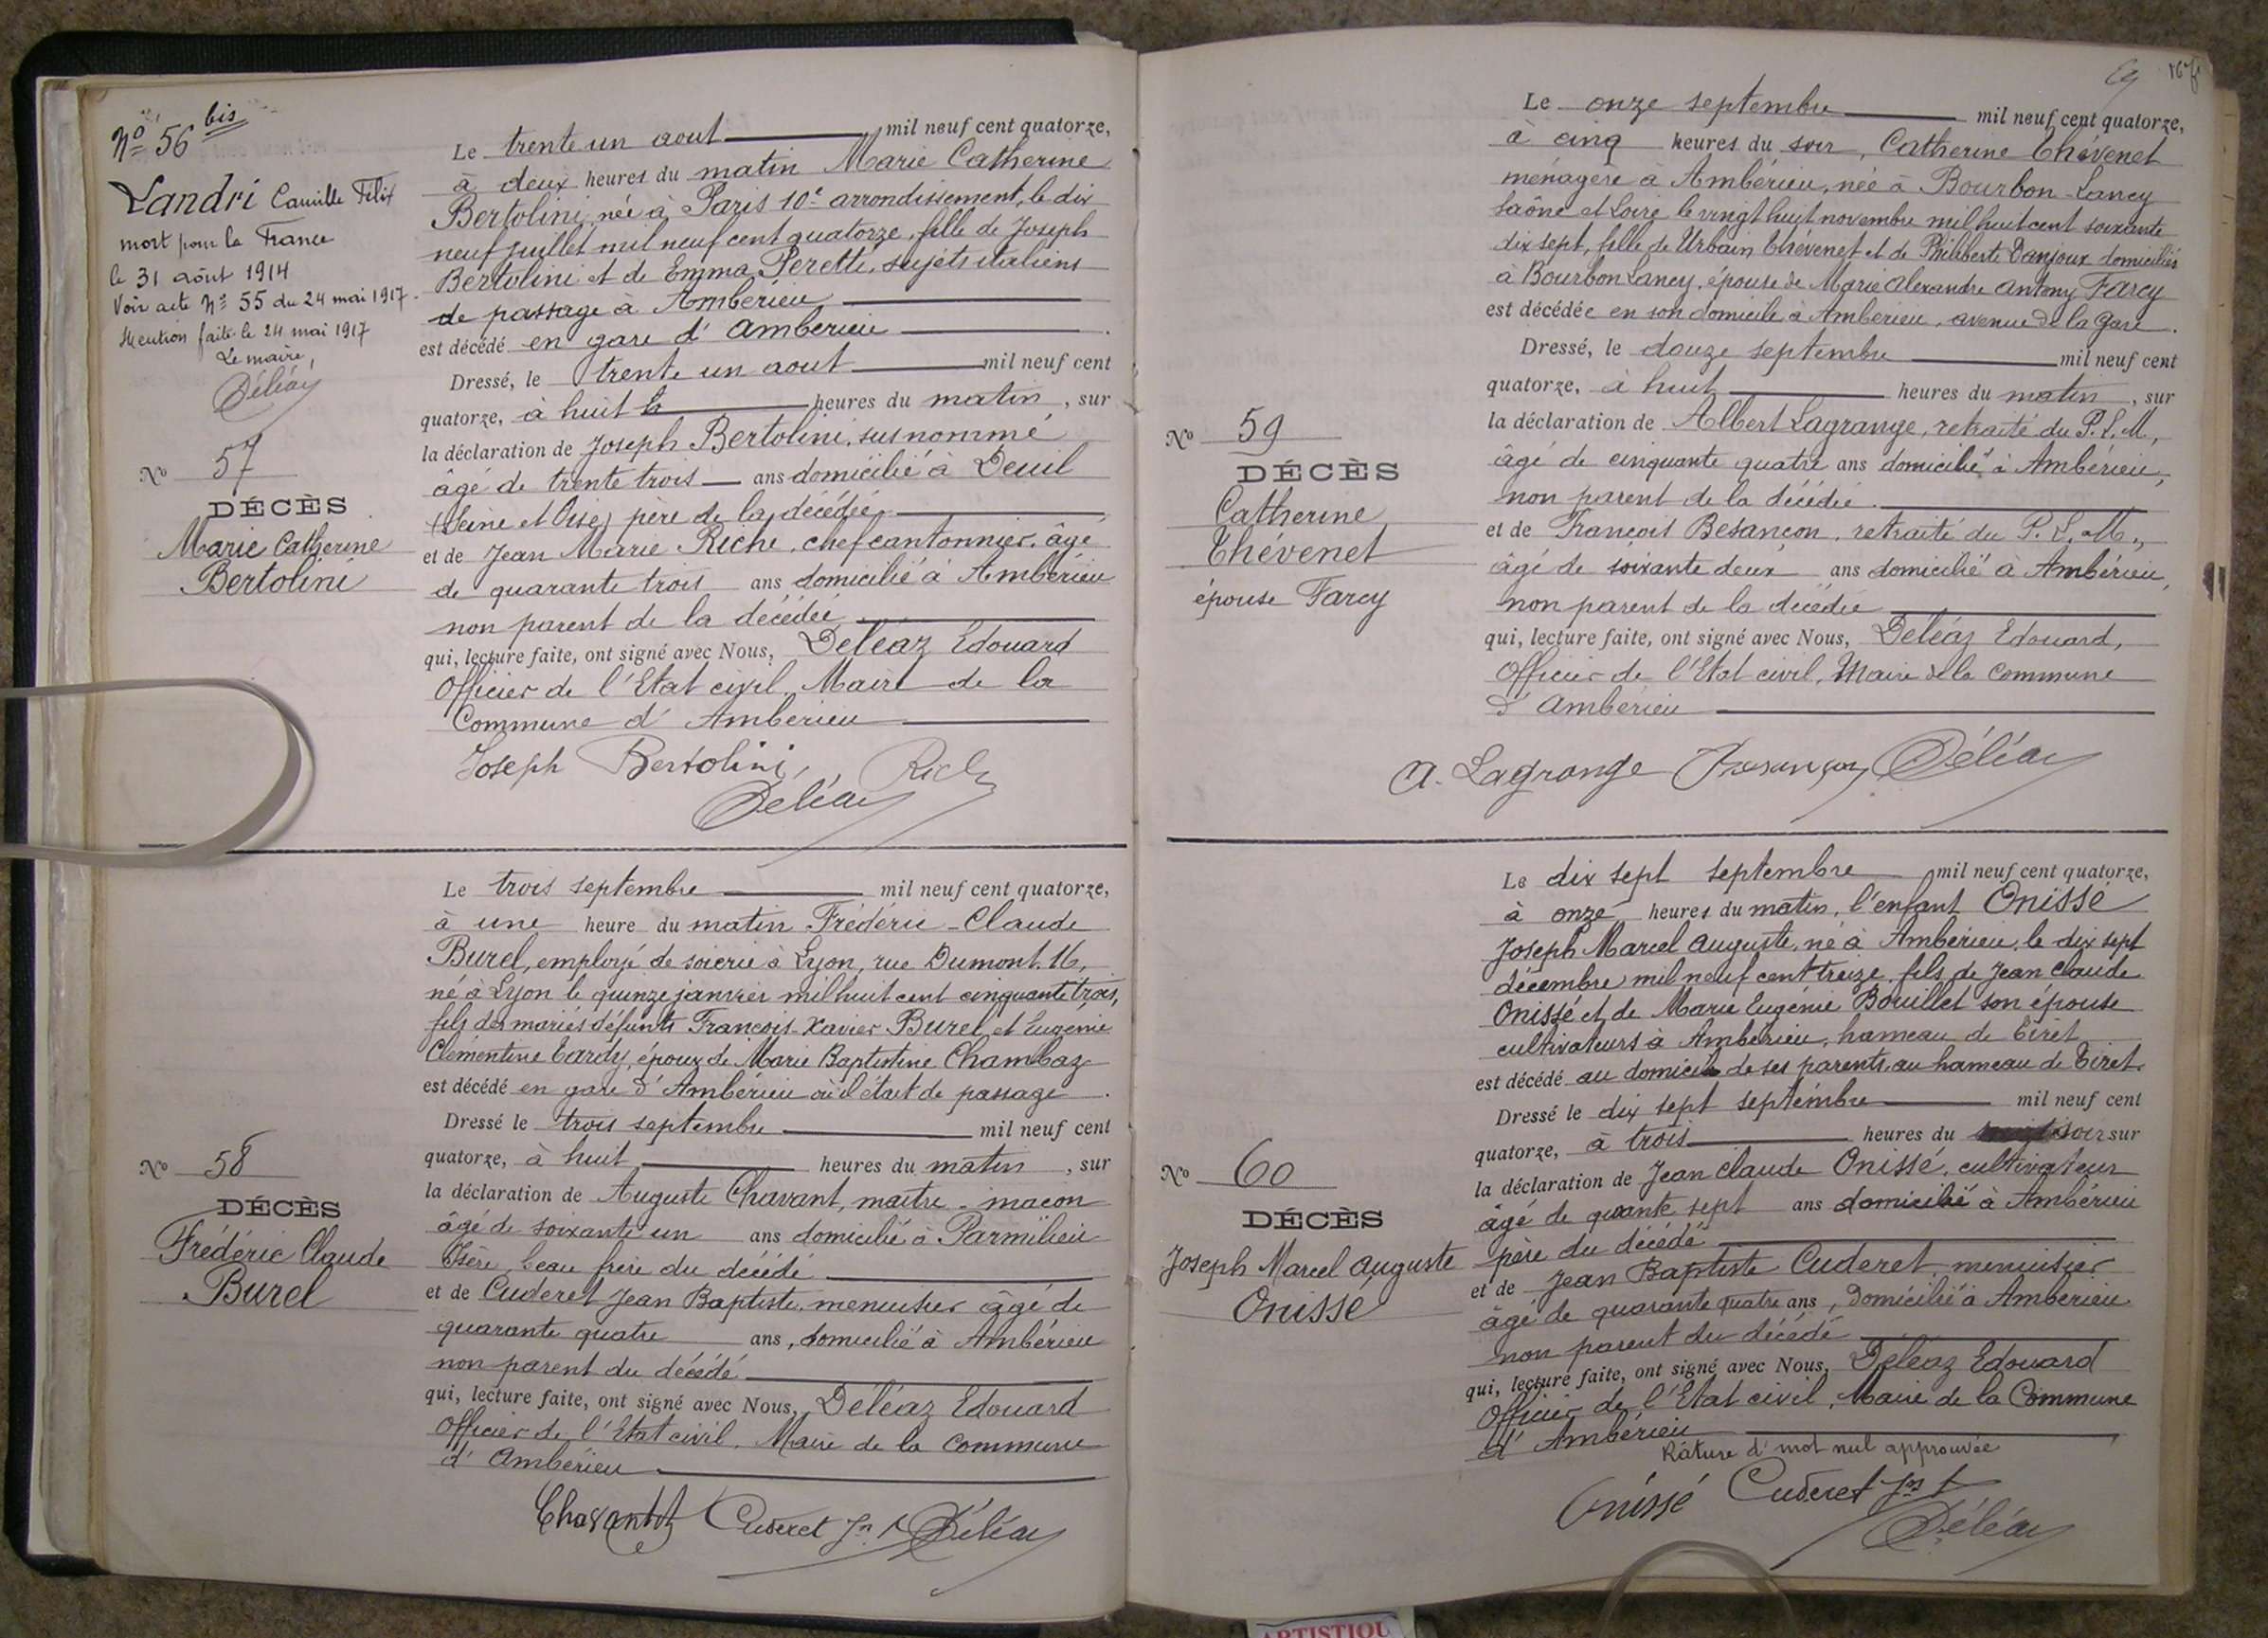 Nº 56 bis
Landri Camille Félix
mort pour la France
le 31 août 1914
Voir acte Nº 55 du 24 mai 1917.
Mention faite le 24 mai 1917
Le maire,
Déléaz
Nº 57
DÉCÈS
Marie Catherine
Bertolini
Le trente un aout mil neuf cent quatorze,
à deux heures du matin Marie Catherine
Bertolini, née à Paris 10e arrondissement, le dix
neuf juillet mil neuf cent quatorze, fille de Joseph
Bertolini et de Emma Peretti, sujets italiens
de passage à Ambérieu
est décédé en gare d'Ambérieu.
Dressé, le trente un aout mil neuf cent
quatorze, à huit heures du matin, sur
la déclaration de Joseph Bertolini, susnommé
âgé de trente trois ans domicilié à Deuil
(Seine et Oise) père de la décédée
et de Jean Marie Riche, chef cantonnier, âgé
de quarante trois ans domicilié à Ambérieu
non parent de la décédée
qui, lecture faite, ont signé avec Nous, Deléaz Edouard
Officier de l'Etat civil, Maire de la
Commune d'Ambérieu
Joseph Bertolini, Riche
Déléaz
Nº 58
DÉCÈS
Frédéric Claude
Burel
Le trois septembre mil neuf cent quatorze,
à une heure du matin Frédéric-Claude
Burel, employé de soierie à Lyon, rue Dumont, 16,
né à Lyon le quinze janvier mil huit cent cinquante trois,
fils des mariés défunts François-Xavier Burel et Eugénie
Clémentine Tardy, époux de Marie Baptistine Chambaz
est décédé en gare d'Ambérieu où il était de passage.
Dressé le trois septembre mil neuf cent
quatorze, à huit heures du matin, sur
la déclaration de Auguste Chavant, maître-maçon
âgé de soixante un ans domicilié à Parmilieu
Isère, beau frère du décédé
et de Cuderet Jean Baptiste, menuisier âgé de
quarante quatre ans, domicilié à Ambérieu
non parent du décédé
qui, lecture faite, ont signé avec Nous, Deléaz Edouard
Officier de l'Etat civil, Maire de la Commune
d'Ambérieu
Chavant Cuderet Jn Bt Déléaz
Nº 59
DÉCÈS
Catherine
Thévenet
épouse Farcy
Le onze septembre mil neuf cent quatorze,
à cinq heures du soir, Catherine Thévenet
ménagère à Ambérieu, née à Bourbon-Lancy
Saône et Loire, le vingt huit novembre mil huit cent soixante
dix sept, fille de Urbain Thévenet et de Philiberte Danjoux domiciliés
à Bourbon Lancy, épouse de Marie Alexandre Antony Farcy
est décédée en son domicile à Ambérieu, avenue de la Gare.
Dressé, le douze septembre mil neuf cent
quatorze, à huit heures du matin, sur
la déclaration de Albert Lagrange, retraité du P.L.M,
âgé de cinquante quatre ans domicilié à Ambérieu,
non parent de la décédée
et de François Besançon, retraité du P.L.M.,
âgé de soixante deux ans domicilié à Ambérieu,
non parent de la décédée
qui, lecture faite, ont signé avec Nous, Deléaz Edouard,
Officier de l'Etat civil, Maire de la Commune
d'Ambérieu
A. Lagrange Besançon Déléaz
Nº 60
DÉCÈS
Joseph Marcel Auguste
Onissé
Le dix sept septembre mil neuf cent quatorze,
à onze heures du matin, l'enfant Onissé
Joseph Marcel Auguste, né à Ambérieu, le dix sept
décembre mil neuf cent treize, fils de Jean Claude
Onissé et de Marie Eugénie Bouillet son épouse
cultivateurs à Ambérieu, hameau de Tiret
est décédé au domicile de ses parents au hameau de Tiret.
Dressé le dix sept septembre mil neuf cent
quatorze, à trois heures du soir sur
la déclaration de Jean Claude Onissé, cultivateur
âgé de quarante sept ans domicilié à Ambérieu
père du décédé
et de Jean Baptiste Cuderet menuisier
âgé de quarante quatre ans, domicilié à Ambérieu
non parent du décédé
qui, lecture faite, ont signé avec Nous, Deléaz Edouard
Officier de l'Etat civil, Maire de la Commune
d'Ambérieu
Râture d'mot nul approuvée
Onissé Cuderet Jn Bt
Déléaz